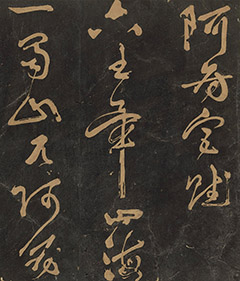 阿房宮賦
六王畢四海
一蜀山兀阿房